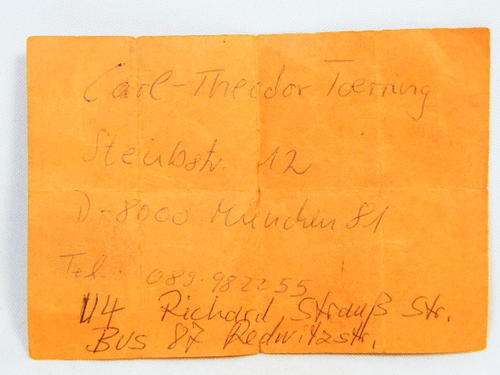 Carl-Theodor Toerring
Steinbstr. 12
D-8000 München 81
Tel.: 089-982255
U4 Richard Strauß Str.
Bus 87 Redwitzstr.